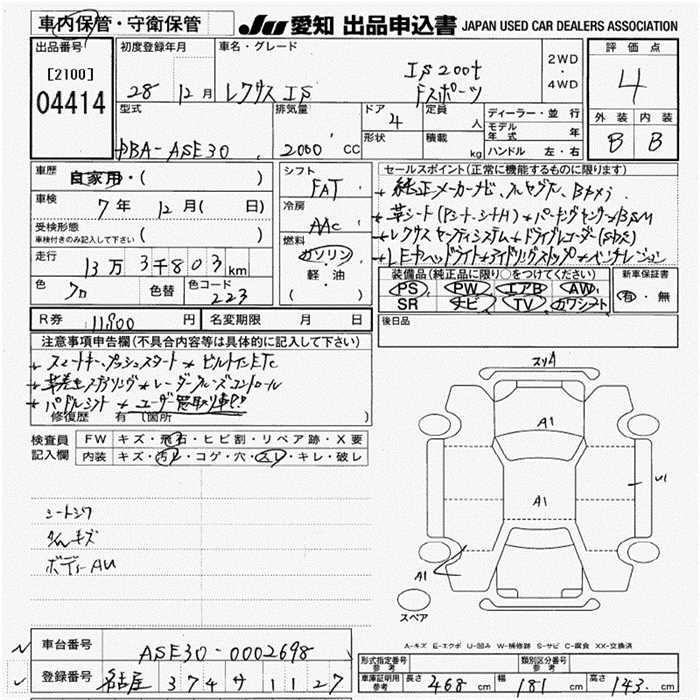 車内保管・守衛保管
JU 愛知 出品申込書 JAPAN USED CAR DEALERS ASSOCIATION
出品番号
[2100]
04414
初度登録年月
28年 12月
車名・グレード
レクサス IS
IS200t
Fスポーツ
2WD
・
4WD
評価点
4
外装 内装
B B
型式
DBA-ASE30
排気量
2000 CC
ドア 4
形状
定員 人
積載 kg
ディーラー・並行
モデル年式 年
ハンドル 左・右
車歴
自家用・( )
車検
7年 12月( 日)
受検形態
車検付きのみ記入して下さい ( )
走行
13万3千803km
色 クロ 色替 色コード 223
シフト
FAT
冷房
AAC
燃料
ガソリン
軽・油
( )
セールスポイント(正常に機能するものに限ります)
純正メーカーナビ、フルセグTV、Bカメラ
革シート(Pシート、シートH)
レクサスセーフティシステム+ ドライブレコーダー
LEDヘッドライト アイドリングストップ ベンチレーション
装備品(純正品に限り○をつけてください)
PS PW エアB AW
SR ナビ TV カワシート
新車保証書
有・無
後日品
R券 11,800 円 名変期限 月 日
注意事項申告欄(不具合内容等は具体的に記入して下さい)
スマートキー、プッシュスタート ビルトインETC
革巻きステアリング レーダークルーズコントロール
パドルシフト ユーザー買取り車!!
修復歴 有(箇所 )
検査員
記入欄
FW キズ・飛石・ヒビ割・リペア跡・X要
内装 キズ・汚れ・コゲ・穴・スレ・キレ・破レ
シートシワ
キズ
ボディーAU
スリA
A1
A1
U1
A1
スペア
A-キズ E-エクボ U-凹み W-補修跡 S-サビ C-腐食 XX-交換済
車台番号 ASE30-0002698
登録番号 名古屋 374 サ 1127
形式指定番号 参考
類別区分番号 参考
車庫証明用 参考 長さ 468 cm 幅 181 cm 高さ 143 cm